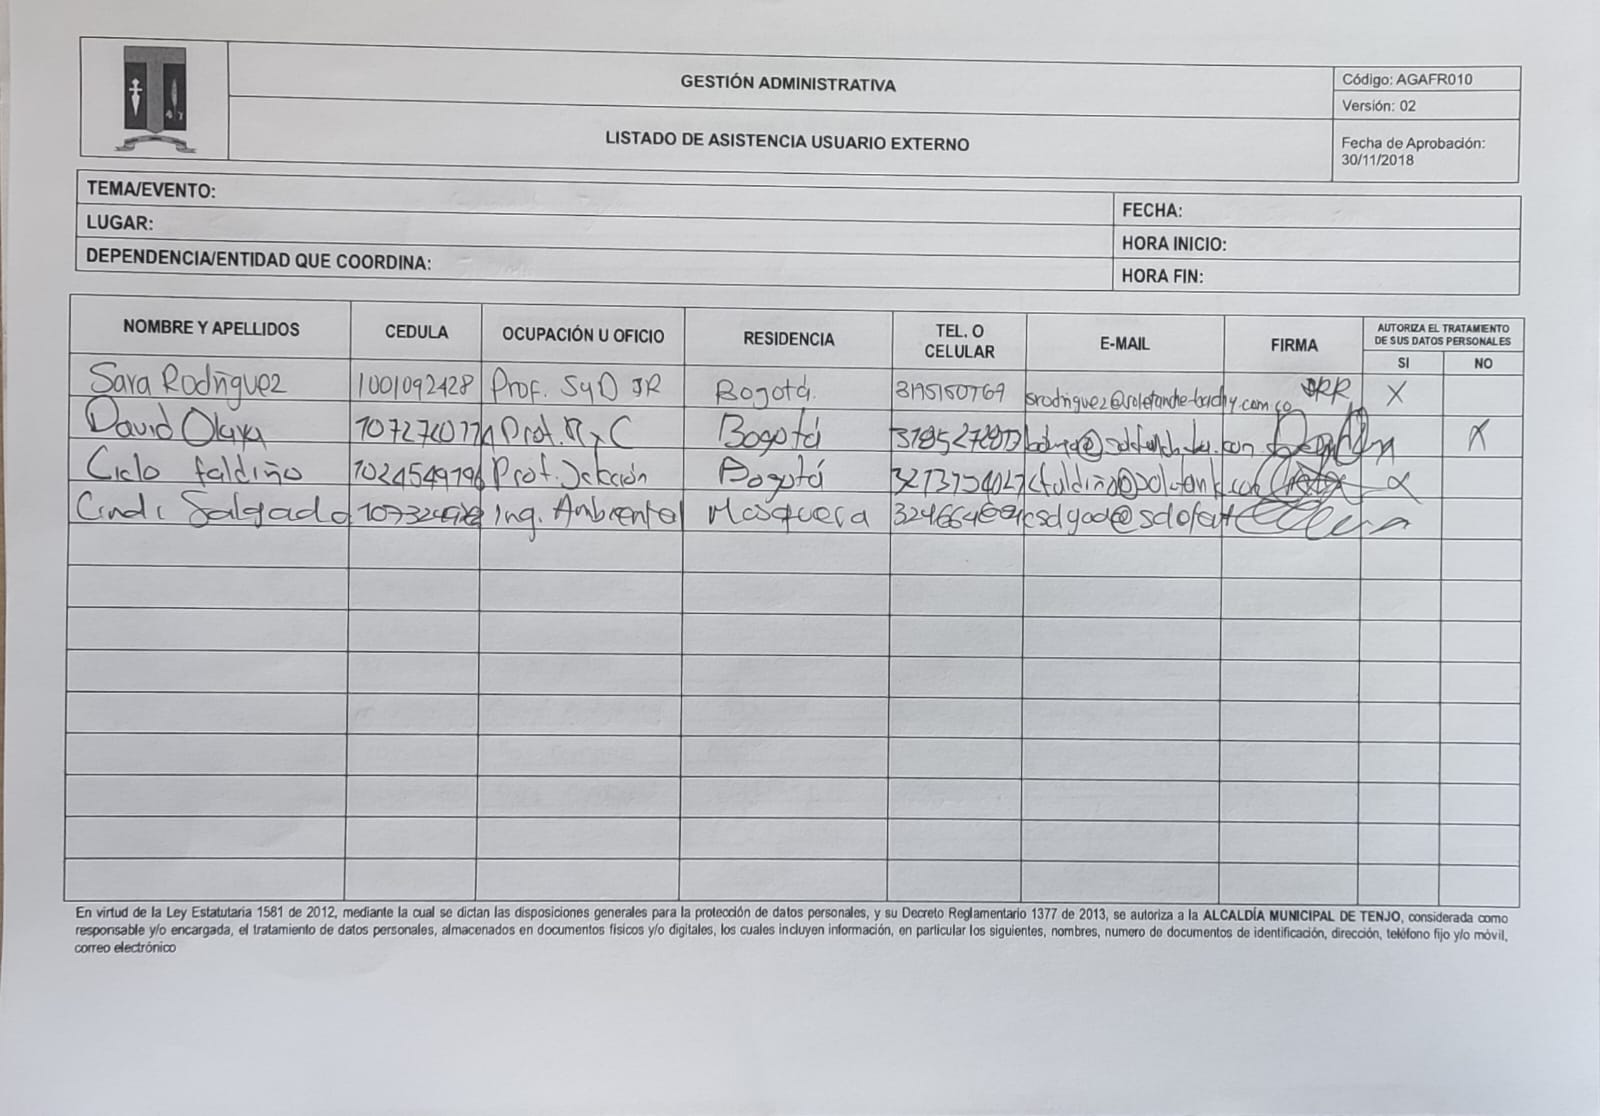 GESTIÓN ADMINISTRATIVA
Código: AGAFR010
Versión: 02
LISTADO DE ASISTENCIA USUARIO EXTERNO
Fecha de Aprobación:
30/11/2018
TEMA/EVENTO:
FECHA:
LUGAR:
HORA INICIO:
DEPENDENCIA/ENTIDAD QUE COORDINA:
HORA FIN:
NOMBRE Y APELLIDOS CEDULA OCUPACIÓN U OFICIO RESIDENCIA TEL. O CELULAR E-MAIL FIRMA AUTORIZA EL TRATAMIENTO DE SUS DATOS PERSONALES
SI NO
Sara Rodriguez 1001092428 Prof. SyD JR Bogotá. 3195150769 SRR X
David Olaya Prof. Bogotá X
Bogotá
Cindi Salgado Ing. Ambiental Mosquera
En virtud de la Ley Estatutaria 1581 de 2012, mediante la cual se dictan las disposiciones generales para la protección de datos personales, y su Decreto Reglamentario 1377 de 2013, se autoriza a la ALCALDÍA MUNICIPAL DE TENJO, considerada como
responsable y/o encargada, el tratamiento de datos personales, almacenados en documentos físicos y/o digitales, los cuales incluyen información, en particular los siguientes, nombres, numero de documentos de identificación, dirección, teléfono fijo y/o móvil,
correo electrónico